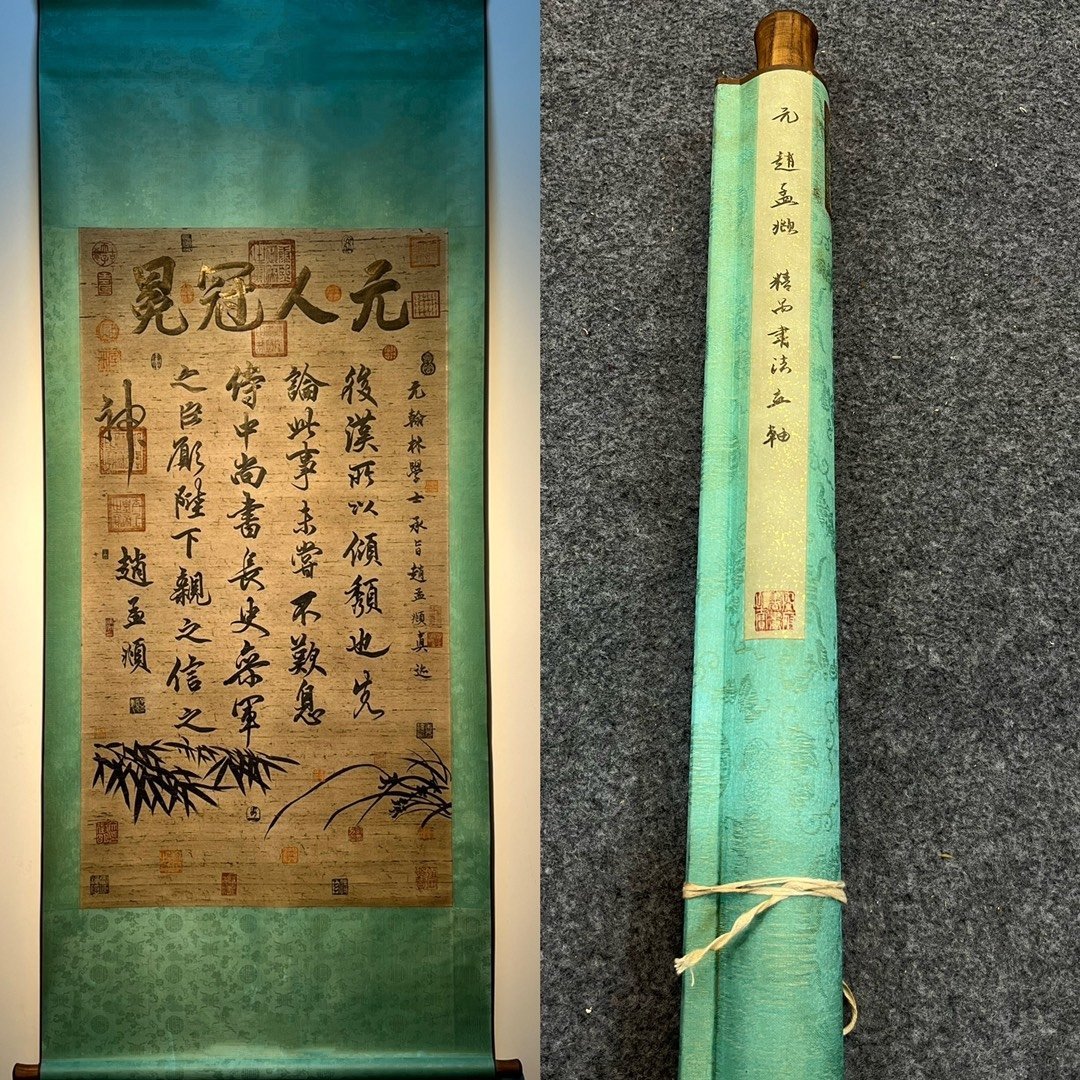 元人冠冕
元翰林學士承旨趙孟頫真迹
後漢所以傾頹也先
論此事未嘗不歎息
侍中尚書長史參軍
之臣願陛下親之信之
神
趙孟頫
元 趙孟頫 精品書法立軸